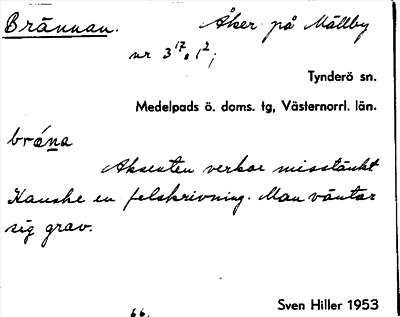 Brännan. Åker på Mällby
nr 3¹⁷, 1²;
Tynderö sn.
Medelpads ö. doms. tg, Västernorrl. län.
brána
Aksenten verkar misstänkt
Kanske en felskrivning. Man väntar
sig grav.
66.
Sven Hiller 1953